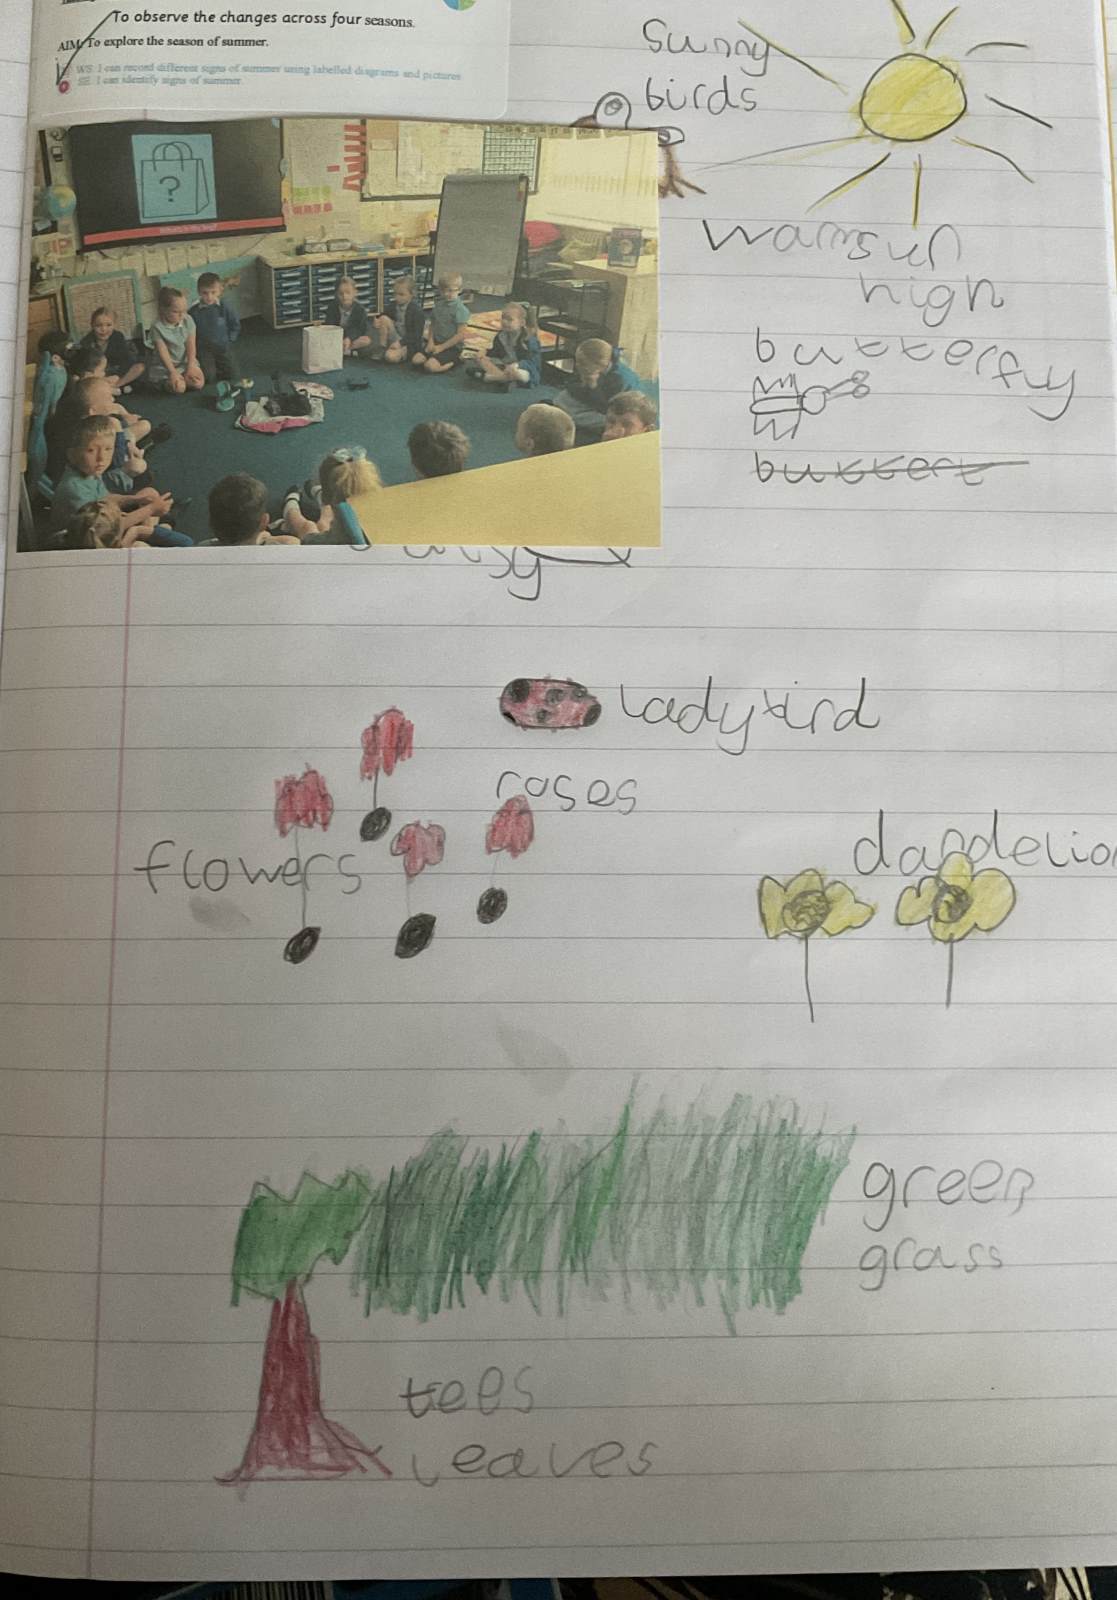 To observe the changes across four seasons.
AIM: To explore the season of summer.
WS: I can record different signs of summer using labelled diagrams and pictures
SE: I can identify signs of summer
?
What's in my bag?
Sunny
birds
warm sun
high
butterfly
buttert
ladybird
roses
flowers
dandelio
green
grass
tees
leaves